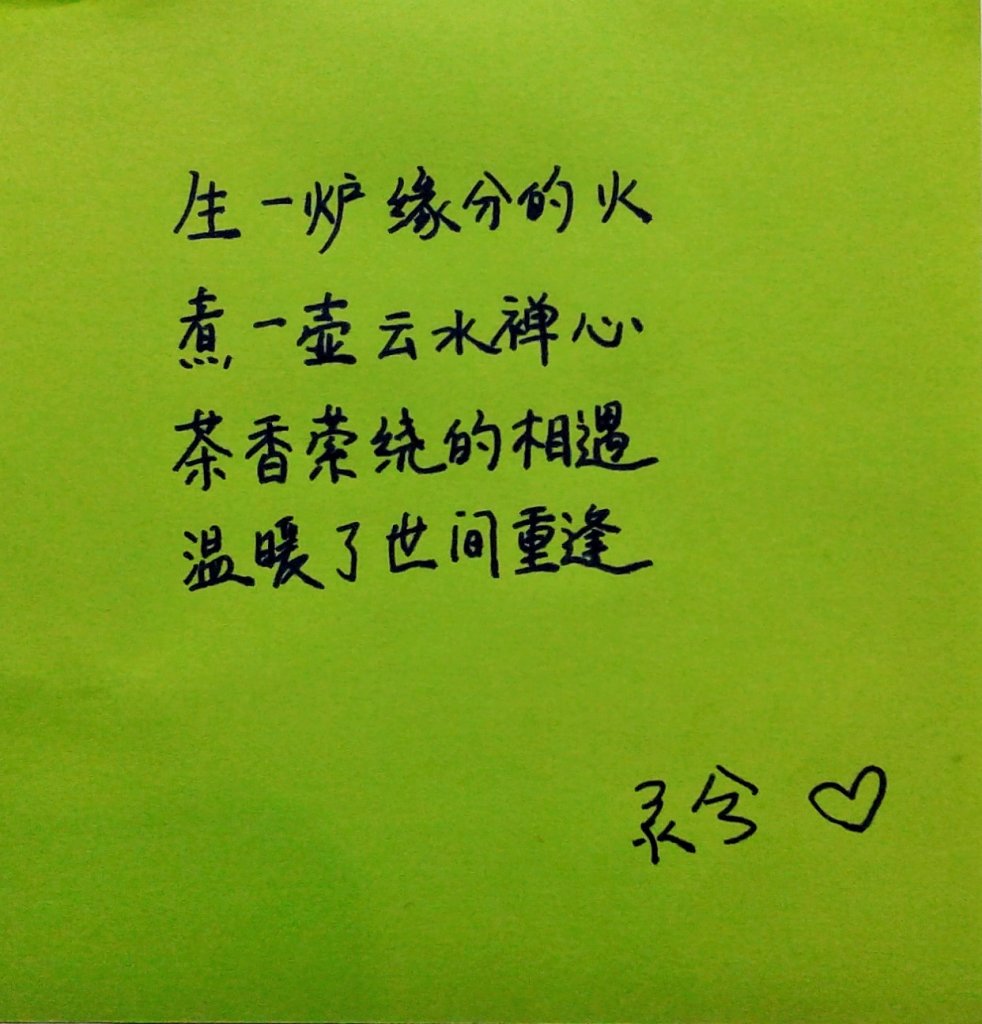 生一炉缘分的火
煮一壶云水禅心
茶香萦绕的相遇
温暖了世间重逢
灵兮♡